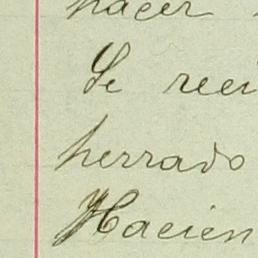 hacer
Se reci
herrado
Hacien